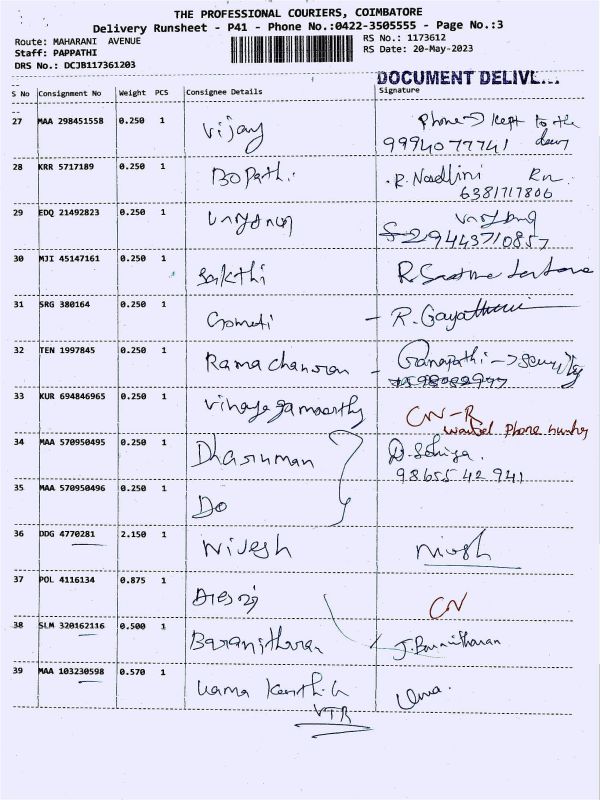 THE PROFESSIONAL COURIERS, COIMBATORE
Delivery Runsheet - P41 - Phone No.:0422-3505555 - Page No.:3
Route: MAHARANI AVENUE
RS No.: 1173612
Staff: PAPPATHI
RS Date: 20-May-2023
DRS No.: DCJB117361203
DOCUMENT DELIV...
S No Consignment No Weight PCS Consignee Details Signature
27 MAA 298451558 0.250 1 Vijay Phone → kept to the
9994077741
28 KRR 5717189 0.250 1 Bopathi R. Nandhini
6381717806
29 EDQ 21492823 0.250 1
9443710857
30 MJI 45147161 0.250 1 Sakthi
31 SRG 380164 0.250 1 Gomati - R. Gayathiri
32 TEN 1997845 0.250 1 Ramachandran - Ganapathi → security
33 KUR 694846965 0.250 1 Vinayagamoorthy CN-R
wanted phone number
34 MAA 570950495 0.250 1 Dharunman
98655 42 941
35 MAA 570950496 0.250 1 Do
36 DDG 4770281 2.150 1 Nivesh
37 POL 4116134 0.875 1 CN
38 SLM 320162116 0.500 1 Baranitharan J. Baranitharan
39 MAA 103230598 0.570 1 Uma
VTR